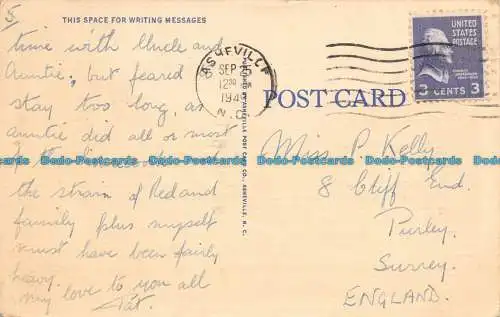 5/
THIS SPACE FOR WRITING MESSAGES
time with Uncle and
Auntie, but feared
stay too long, as
auntie did all or most
of the
the strain of Red and
family plus myself
must have been fairly
heavy.
my love to you all
Pat.
PUBLISHED BY ASHEVILLE POST CARD CO., ASHEVILLE, N. C.
ASHEVILLE
SEP 25
12 30 PM
194
N. C.
UNITED
STATES
POSTAGE
3 CENTS 3
POST CARD
Miss P Kelly
8 Cliff End.
Purley.
Surrey.
ENGLAND.
Dodo-Postcards.com